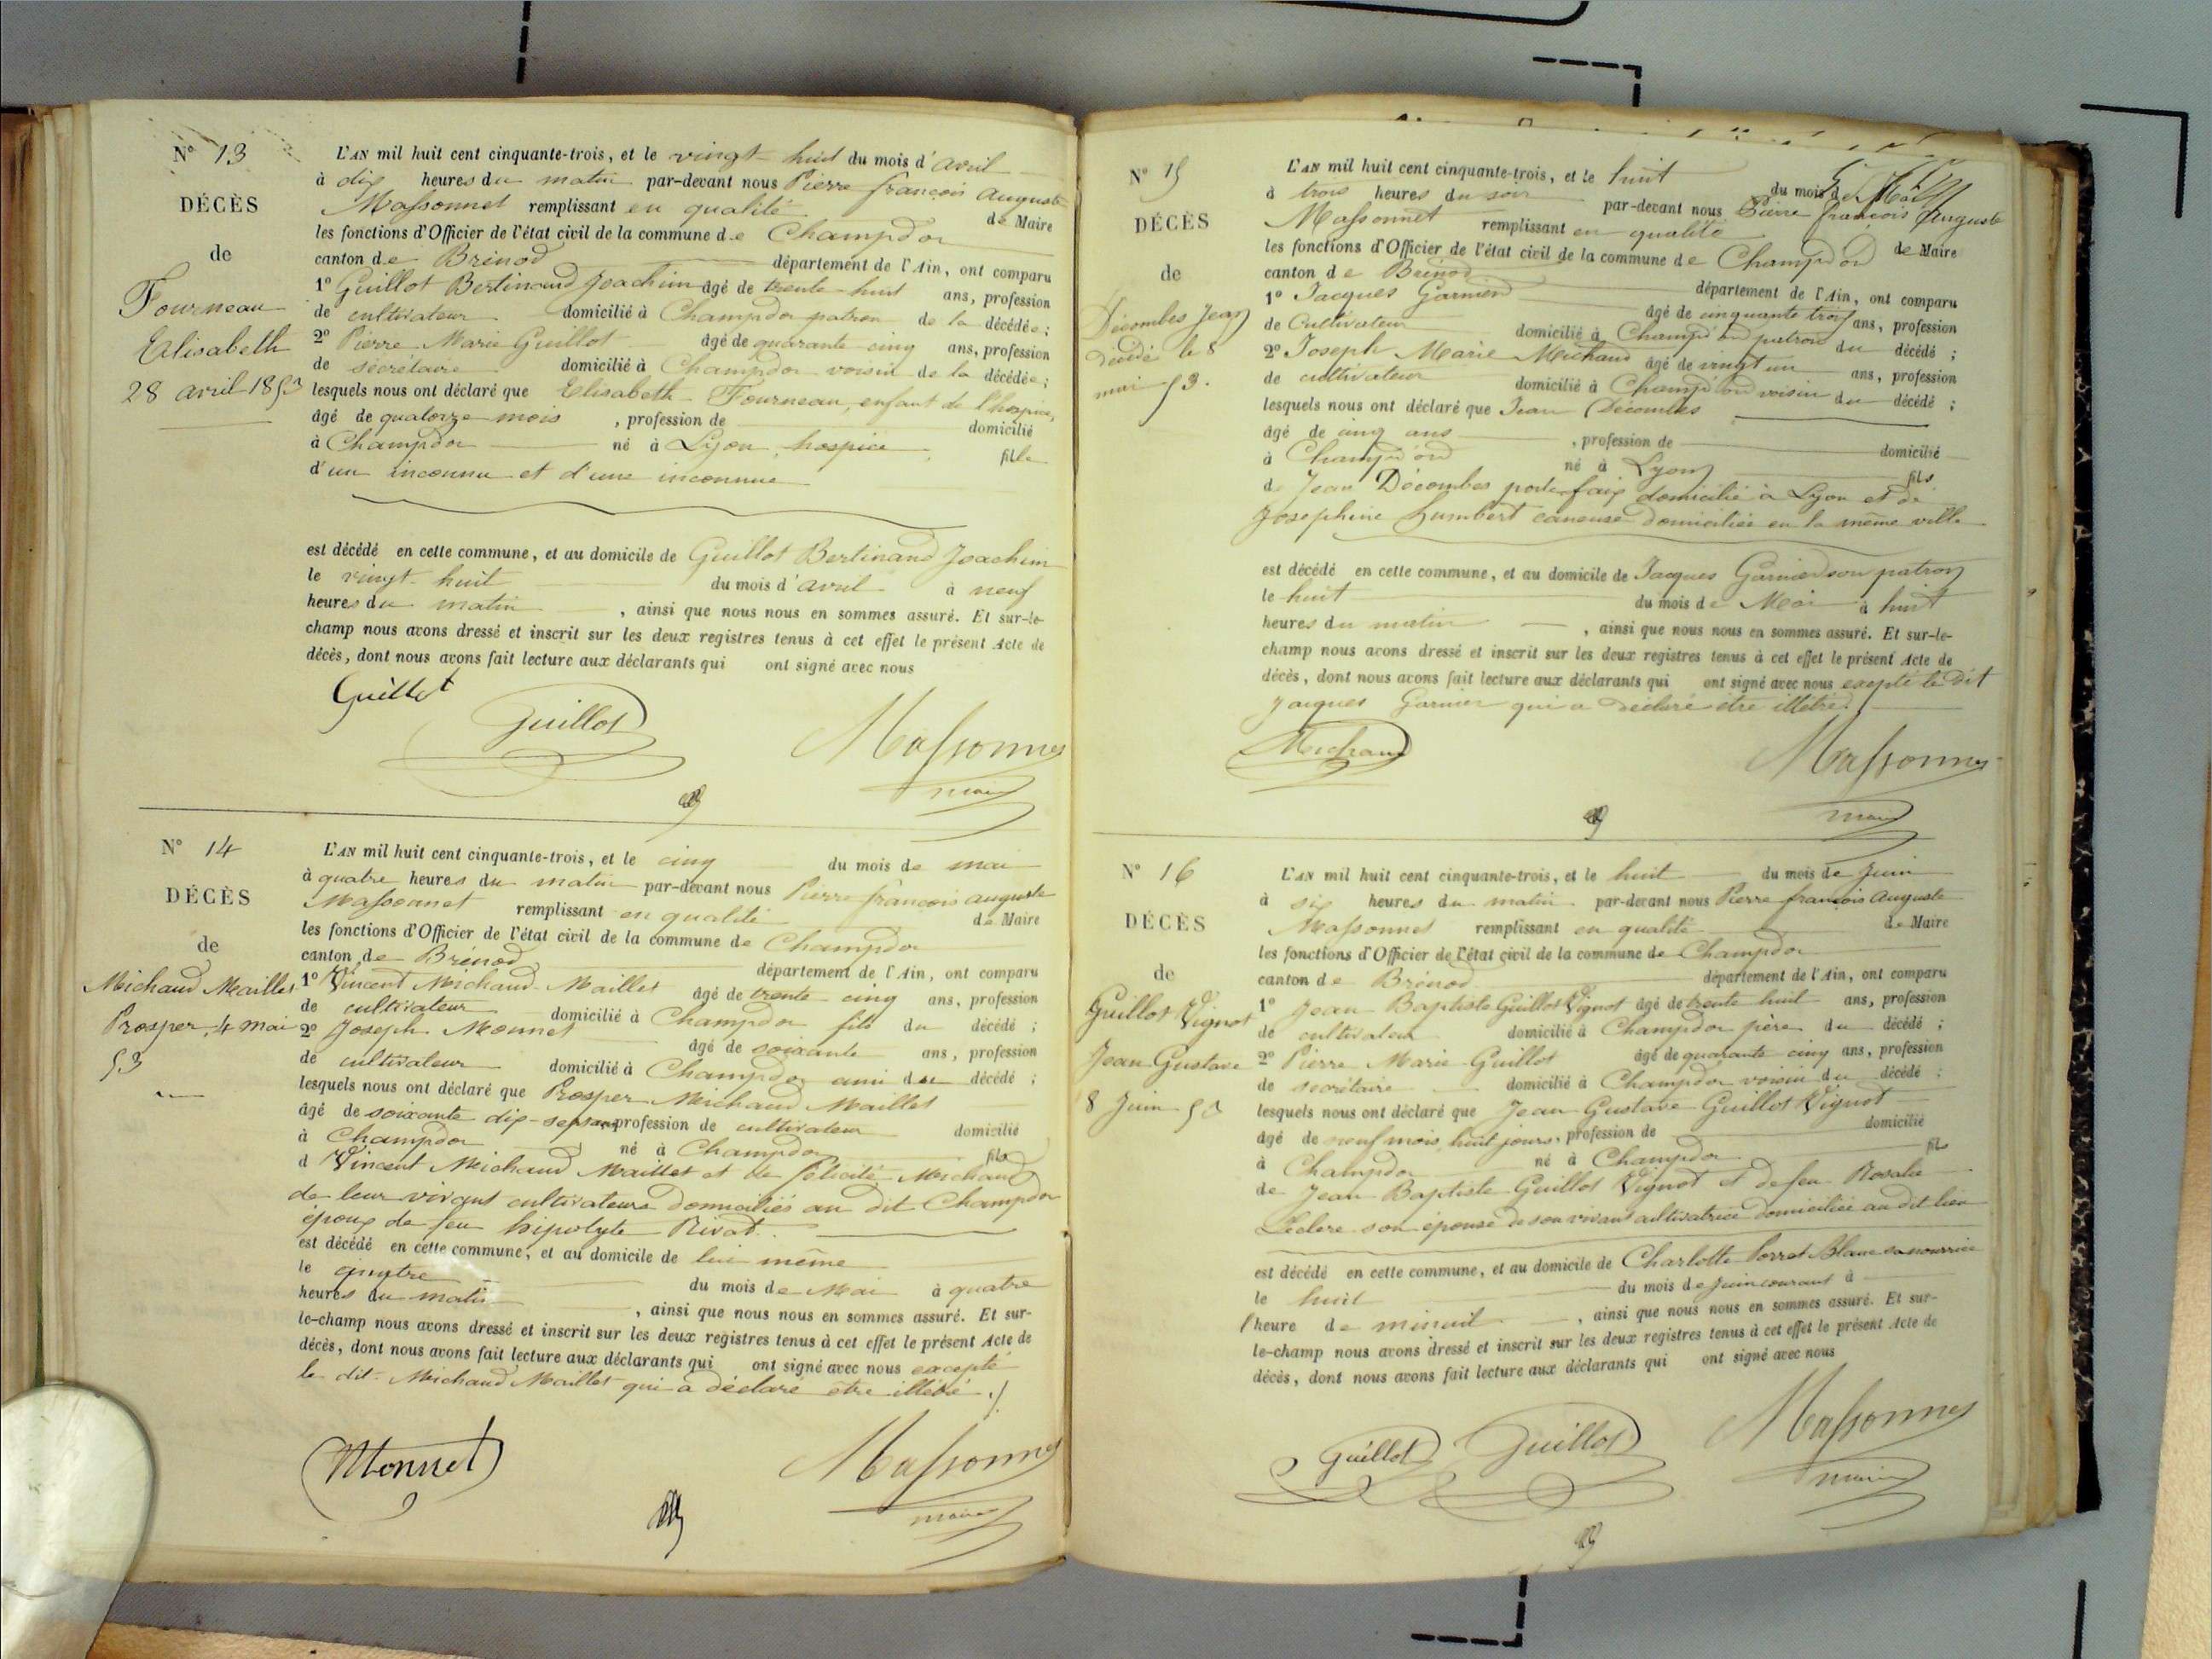 N° 13
DÉCÈS
de
Fourneau
Elisabeth
28 avril 1853
L'AN mil huit cent cinquante-trois, et le vingt-huit du mois d'avril
à dix heures du matin par-devant nous Pierre françois Auguste
Massonnet remplissant en qualité de Maire
les fonctions d'Officier de l'état civil de la commune de Champdor
canton de Brénod département de l'Ain, ont comparu
1° Guillot Bertinand Joachim âgé de trente-huit ans, profession
de cultivateur domicilié à Champdor patron de la décédée;
2° Pierre Marie Guillot âgé de quarante cinq ans, profession
de sécrétaire domicilié à Champdor voisin de la décédée;
lesquels nous ont déclaré que Elisabeth Fourneau, enfant de l'hospice,
âgé de quatorze mois, profession de domicilié
à Champdor né à Lyon, hospice, fille
d'un inconnu et d'une inconnue
est décédé en cette commune, et au domicile de Guillot Bertinand Joachim
le vingt-huit du mois d'avril à neuf
heures du matin, ainsi que nous nous en sommes assuré. Et sur-le-
champ nous avons dressé et inscrit sur les deux registres tenus à cet effet le présent Acte de
décès, dont nous avons fait lecture aux déclarants qui ont signé avec nous
Guillot Guillot Massonnet
maire
N° 14
DÉCÈS
de
Michaud Maillet
Prosper, 4 mai
53
L'AN mil huit cent cinquante-trois, et le cinq du mois de mai
à quatre heures du matin par-devant nous Pierre françois auguste
Massonnet remplissant en qualité de Maire
les fonctions d'Officier de l'état civil de la commune de Champdor
canton de Brénod département de l'Ain, ont comparu
1° Vincent Michaud-Maillet âgé de trente cinq ans, profession
de cultivateur domicilié à Champdor fils du décédé;
2° Joseph Monnet âgé de soixante ans, profession
de cultivateur domicilié à Champdor ami du décédé;
lesquels nous ont déclaré que Prosper Michaud Maillet
âgé de soixante dix-sept ans profession de cultivateur domicilié
à Champdor né à Champdor fils
d Vincent Michaud Maillet et de félicité Michaud
de leur vivant cultivateurs domiciliés au dit Champdor
époux de feu hipolyte Rivat.
est décédé en cette commune, et au domicile de lui même
le quatre du mois de Mai à quatre
heures du matin, ainsi que nous nous en sommes assuré. Et sur-
le-champ nous avons dressé et inscrit sur les deux registres tenus à cet effet le présent Acte de
décès, dont nous avons fait lecture aux déclarants qui ont signé avec nous excepté
le dit Michaud Maillet qui a déclaré être illétré ./.
Monnet Massonnet
maire
N° 15
DÉCÈS
de
Décombes Jean
décédé le 8
mai 53.
L'AN mil huit cent cinquante-trois, et le huit du mois de Mai
à trois heures du soir par-devant nous Pierre françois Auguste
Massonnet remplissant en qualité de Maire
les fonctions d'Officier de l'état civil de la commune de Champd'or
canton de Brénod département de l'Ain, ont comparu
1° Jacques Garnier âgé de cinquante trois ans, profession
de Cultivateur domicilié à Champd'or patron du décédé;
2° Joseph Marie Michaud âgé de vingt un ans, profession
de cultivateur domicilié à Champd'or voisin du décédé;
lesquels nous ont déclaré que Jean Décombes
âgé de cinq ans, profession de domicilié
à Champd'or né à Lyon fils
de Jean Décombes porte-faix domicilié à Lyon et de
Josephine humbert caneuse domiciliée en la même ville
est décédé en cette commune, et au domicile de Jacques Garnier son patron
le huit du mois de Mai à huit
heures du matin, ainsi que nous nous en sommes assuré. Et sur-le-
champ nous avons dressé et inscrit sur les deux registres tenus à cet effet le présent Acte de
décès, dont nous avons fait lecture aux déclarants qui ont signé avec nous excepté le dit
Jacques Garnier qui a déclaré être illétré
Michaud Massonnet
maire
N° 16
DÉCÈS
de
Guillot Vignot
Jean Gustave
8 Juin 53
L'AN mil huit cent cinquante-trois, et le huit du mois de Juin
à six heures du matin par-devant nous Pierre françois Auguste
Massonnet remplissant en qualité de Maire
les fonctions d'Officier de l'état civil de la commune de Champdor
canton de Brénod département de l'Ain, ont comparu
1° Jean Baptiste Guillot Vignot âgé de trente huit ans, profession
de cultivateur domicilié à Champdor père du décédé;
2° Pierre Marie Guillot âgé de quarante cinq ans, profession
de secrétaire domicilié à Champdor voisin du décédé;
lesquels nous ont déclaré que Jean Gustave Guillot Vignot
âgé de neuf mois huit jours, profession de domicilié
à Champdor né à Champdor fils
de Jean Baptiste Guillot Vignot et de feu Rosalie
Léclere son épouse de son vivant cultivatrice domiciliée au dit lieu
est décédé en cette commune, et au domicile de Charlotte Porret Blanc sa nourrice
le huit du mois de juin courant à
l'heure de minuit, ainsi que nous nous en sommes assuré. Et sur-
le-champ nous avons dressé et inscrit sur les deux registres tenus à cet effet le présent Acte de
décès, dont nous avons fait lecture aux déclarants qui ont signé avec nous
Guillot Guillot Massonnet
maire